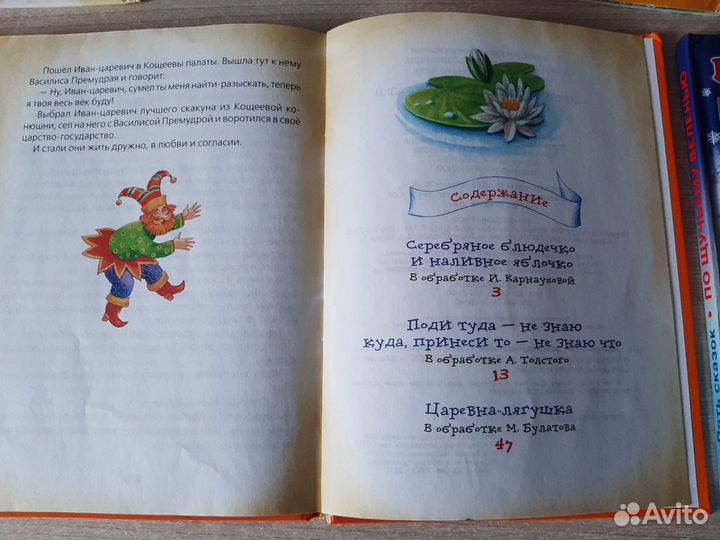 Пошёл Иван-царевич в Кощеевы палаты. Вышла тут к нему
Василиса Премудрая и говорит:
— Ну, Иван-царевич, сумел ты меня найти-разыскать, теперь
я твоя весь век буду!
Выбрал Иван-царевич лучшего скакуна из Кощеевой ко-
нюшни, сел на него с Василисой Премудрой и воротился в своё
царство-государство.
И стали они жить дружно, в любви и согласии.
Содержание
Серебряное блюдечко
и наливное яблочко
В обработке И. Карнауховой
3
Поди туда — не знаю
куда, принеси то — не знаю что
В обработке А. Толстого
13
Царевна-лягушка
В обработке М. Булатова
47
сказок • ПО ЩУЧЬЕМУ ВЕЛЕНЬЮ
Avito